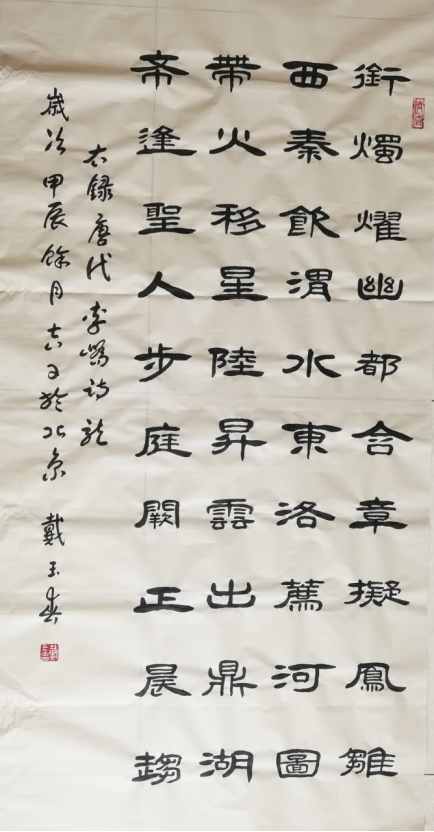 銜燭燿幽都含章擬鳳雛
西秦飲渭水東洛薦河圖
帶火移星陸昇雲出鼎湖
帝逢聖人步庭闕正晨趨
右録唐代李嶠詩龍
歲次甲辰餘月吉日於北京 戴玉春